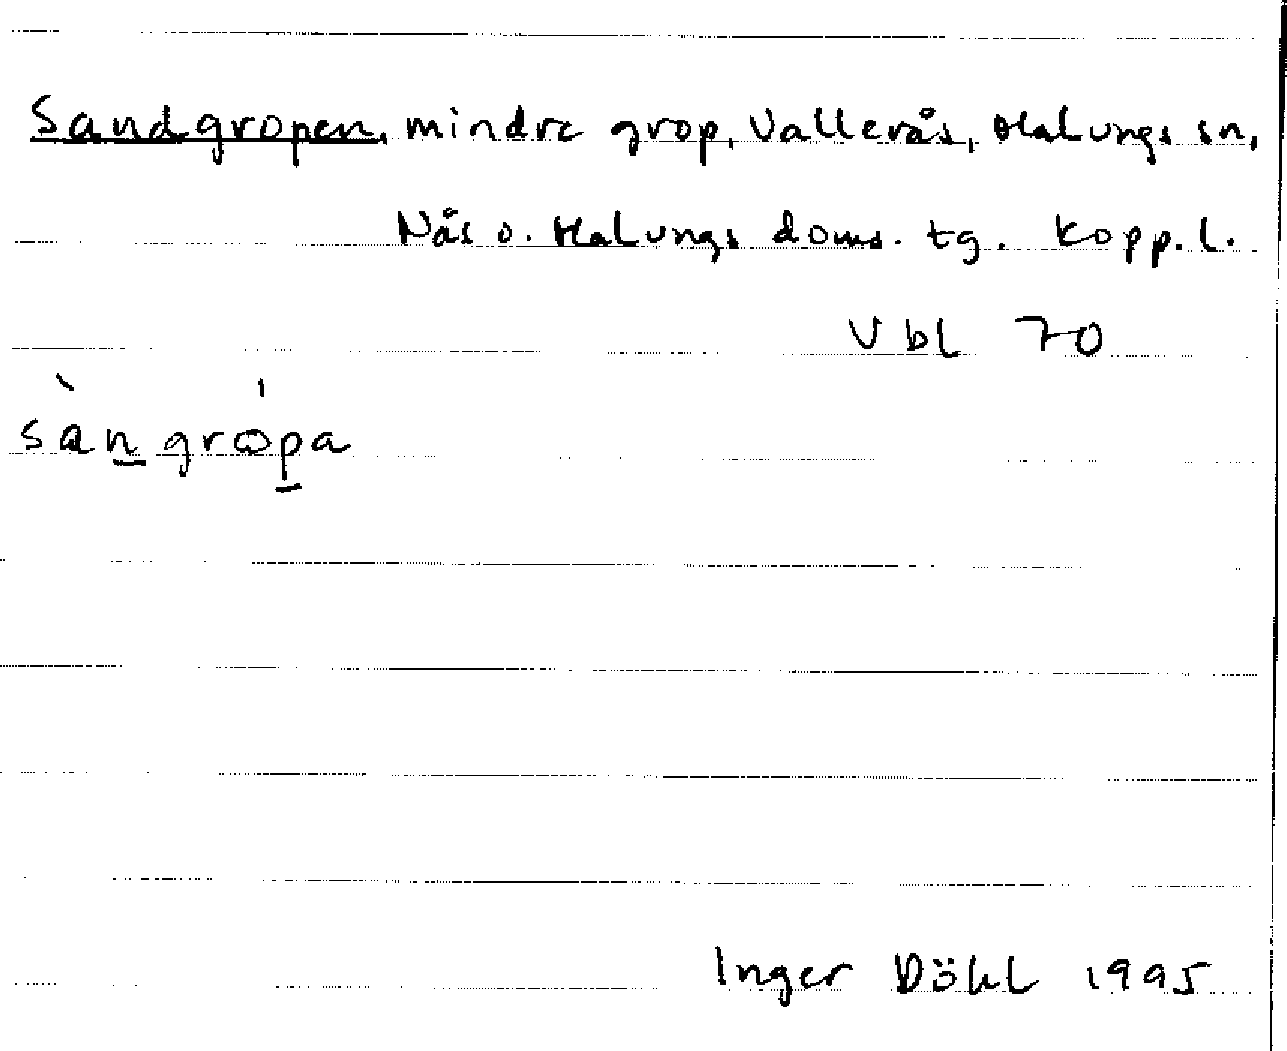 Sandgropen, mindre grop, Vallerås, Malungs sn,
Nås o. Malungs doms. tg. Kopp. l.
Vbl 70
sàn̲gróp̲a
Inger Döhl 1995